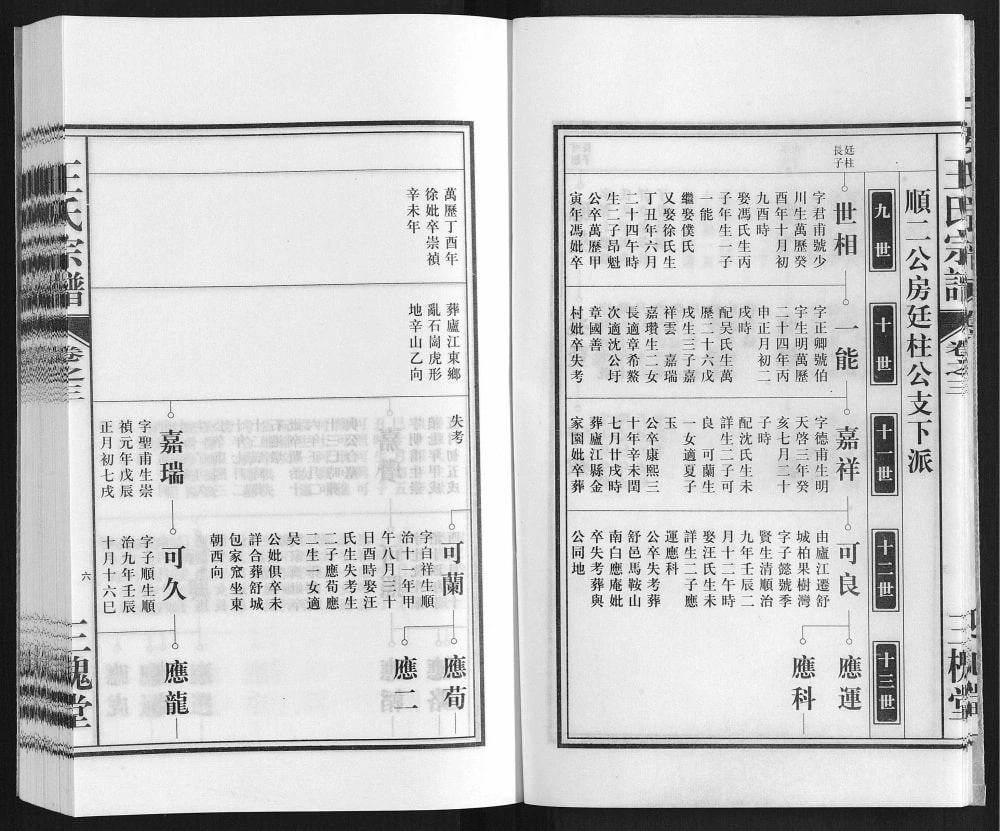 王氏宗譜
卷之三
三槐堂
順二公房廷柱公支下派
九世
十世
十一世
十二世
十三世
廷柱
長子
世相
字君甫號少
川生萬歷癸
酉年十月初
九酉時
娶馮氏生丙
子年生一子
一能
繼娶僕氏
又娶徐氏生
丁丑年六月
二十四午時
生二子昂魁
公卒萬歷甲
寅年馮妣卒
一能
字正卿號伯
宇生明萬歷
二十四年丙
申正月初二
戌時
配吴氏生萬
歷二十六戊
戌生三子嘉
祥雲　嘉瑞
嘉瓚生二女
長適章希鰲
次適沈公圩
章國善
村妣卒失考
嘉祥
字德甫生明
天啓三年癸
亥七月二十
子時
配沈氏生未
詳生二子可
良　可蘭生
一女適夏子
玉
公卒康熙三
十年辛未閏
七月廿戌時
葬廬江縣金
家園妣卒葬
可良
由廬江遷舒
城柏果樹灣
字子懿號季
賢生清順治
九年壬辰二
月十二午時
娶汪氏生未
詳生二子應
運應科
公卒失考葬
舒邑馬鞍山
南白應庵妣
卒失考葬與
公同地
應運
應科
萬歷丁酉年
徐妣卒崇禎
辛未年
葬廬江東鄉
亂石崗虎形
地辛山乙向
失考
嘉瑞
字聖甫生崇
禎元年戊辰
正月初七戌
可蘭
字自祥生順
治十一年甲
午八月三十
日酉時娶汪
氏生失考生
二子應荀應
二生一女適
吴
公妣俱卒未
詳合葬舒城
包家窊坐東
朝西向
可久
字子順生順
治九年壬辰
十月十六巳
應荀
應二
應龍
王氏宗譜
卷之三
六
三槐堂